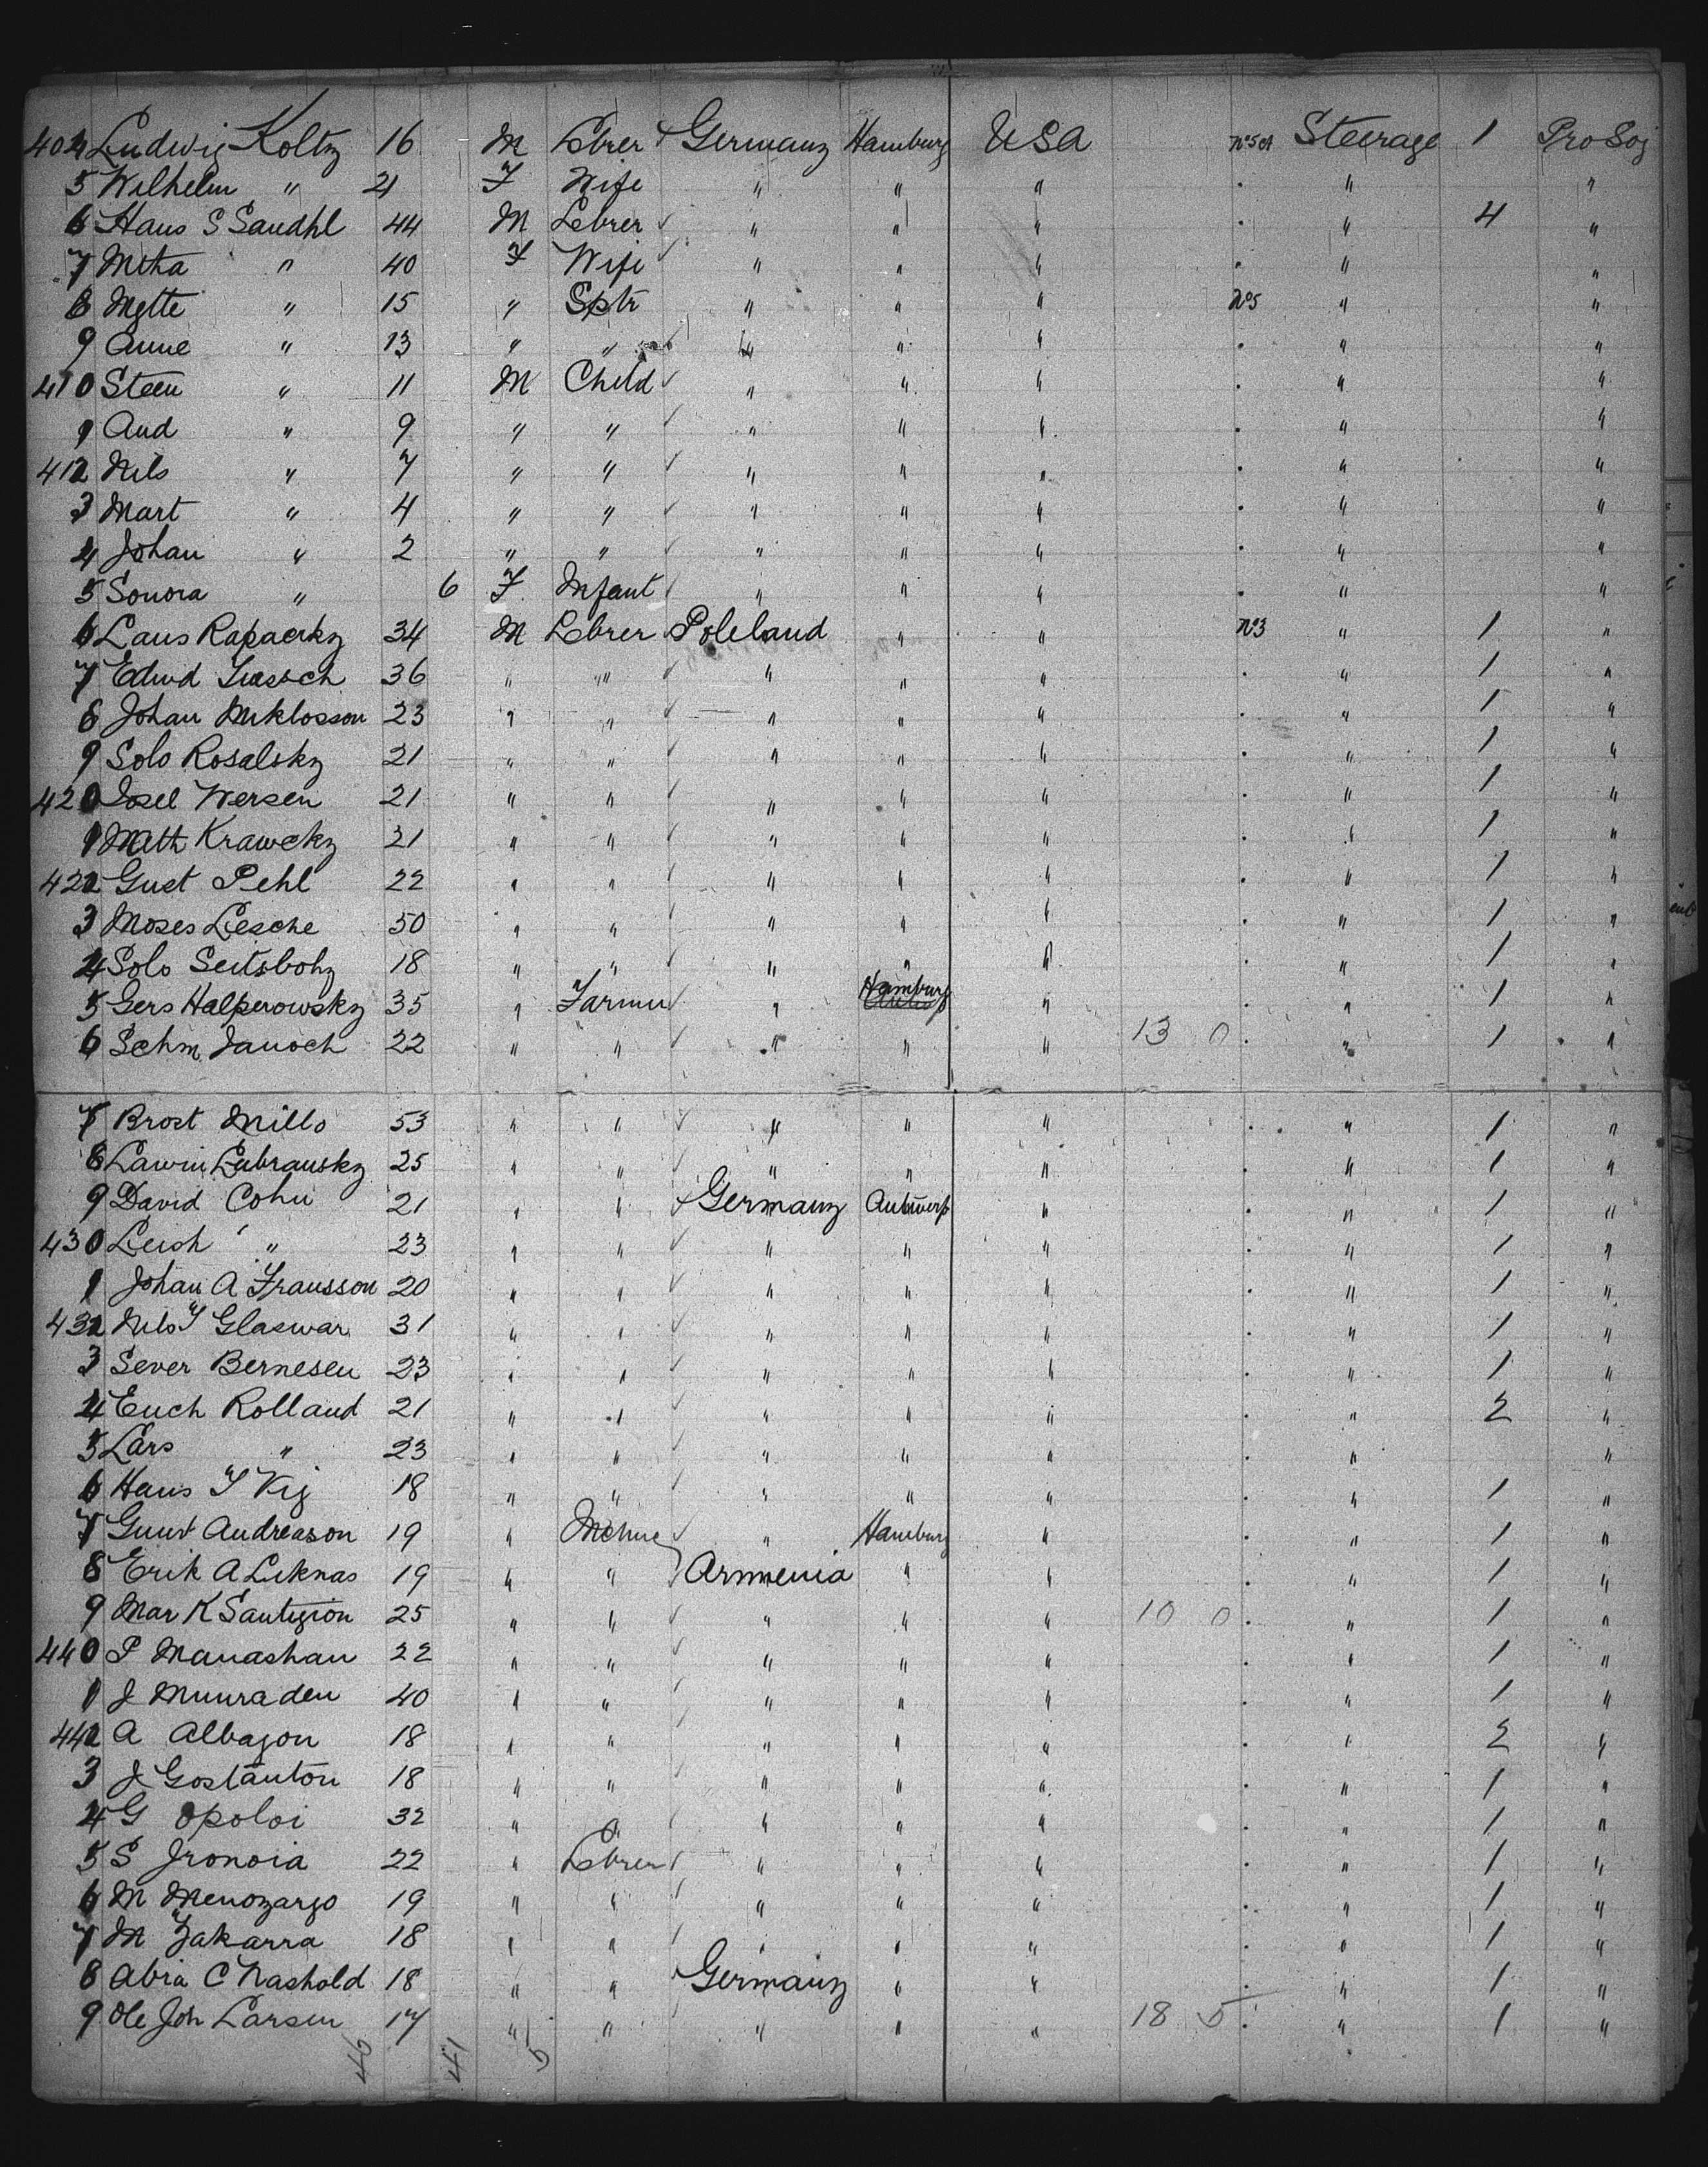 404 Ludwig Koltz 16 M Lebrer Germany Hamburg USA No 5 Steerage 1 Pro Soj
5 Wilhelm " 21 F Wife " " " . " "
6 Hans S Sandhl 44 M Lebrer " " " . " 4 "
7 Meha " 40 F Wife " " " . " "
8 Mette " 15 " Sptr " " " No5 " "
9 Anne " 13 " " " " " . " "
410 Steen " 11 M Child " " " . " "
1 And " 9 " " " " " . " "
412 Nils " 7 " " " " " . " "
3 Mart " 4 " " " " " . " "
4 Johan " 2 " " " " " . " "
5 Sonora " 6 F Infant " " " . " "
6 Laus Rapacky 34 M Lebrer Poleland " " No3 " 1 "
7 Edwd 36 " " " " " . " 1 "
8 Johan Miklosson 23 " " " " " . " 1 "
9 Solo Rosalsky 21 " " " " " . " 1 "
420 Josel Wersen 21 " " " " " . " 1 "
1 Math Krawcky 21 " " " " " . " 1 "
422 Gust Pehl 22 " " " " " . " 1 "
3 Moses Lesche 50 " " " " " . " 1 "
4 Solo Seitsbohy 18 " " " " " . " 1 "
5 Gers Halperowsky 35 " Farmer " Hamburg " . " 1 "
6 Schm Janoch 22 " " " " " 13 0 . " 1 "
7 Brost Mills 53 " " " " " . " 1 "
8 Lawin Lubransky 25 " " " " " . " 1 "
9 David Cohn 21 " " Germany Antwerp " . " 1 "
430 Leish " 23 " " " " " . " 1 "
1 Johan A Fransson 20 " " " " " . " 1 "
432 Nils Y Glaswar 31 " " " " " . " 1 "
3 Sever Bernesen 23 " " " " " . " 1 "
4 Erich Rolland 21 " " " " " . " 2 "
5 Lars " 23 " " " " " . " "
6 Hans Y Vig 18 " " " " " . " 1 "
7 Gunt Andreason 19 " Mchnc " Hamburg " . " 1 "
8 Erik A Liknas 19 " " Armenia " " . " 1 "
9 Mar K Santigion 25 " " " " " 10 0 . " 1 "
440 P Manashan 22 " " " " " . " 1 "
1 J Muuraden 40 " " " " " . " 1 "
442 A Albagon 18 " " " " " . " 2 "
3 J Gostanton 18 " " " " " . " 1 "
4 G Opoloi 32 " " " " " . " 1 "
5 S Jronoia 22 " Lebrer " " " . " 1 "
6 M Menozargo 19 " " " " " . " 1 "
7 M Zakarra 18 " " " " " . " 1 "
8 Abra C Nashold 18 " " Germany " " . " 1 "
9 Ole Joh Larsen 17 " " " " " 18 5 . " 1 "
46 41 5